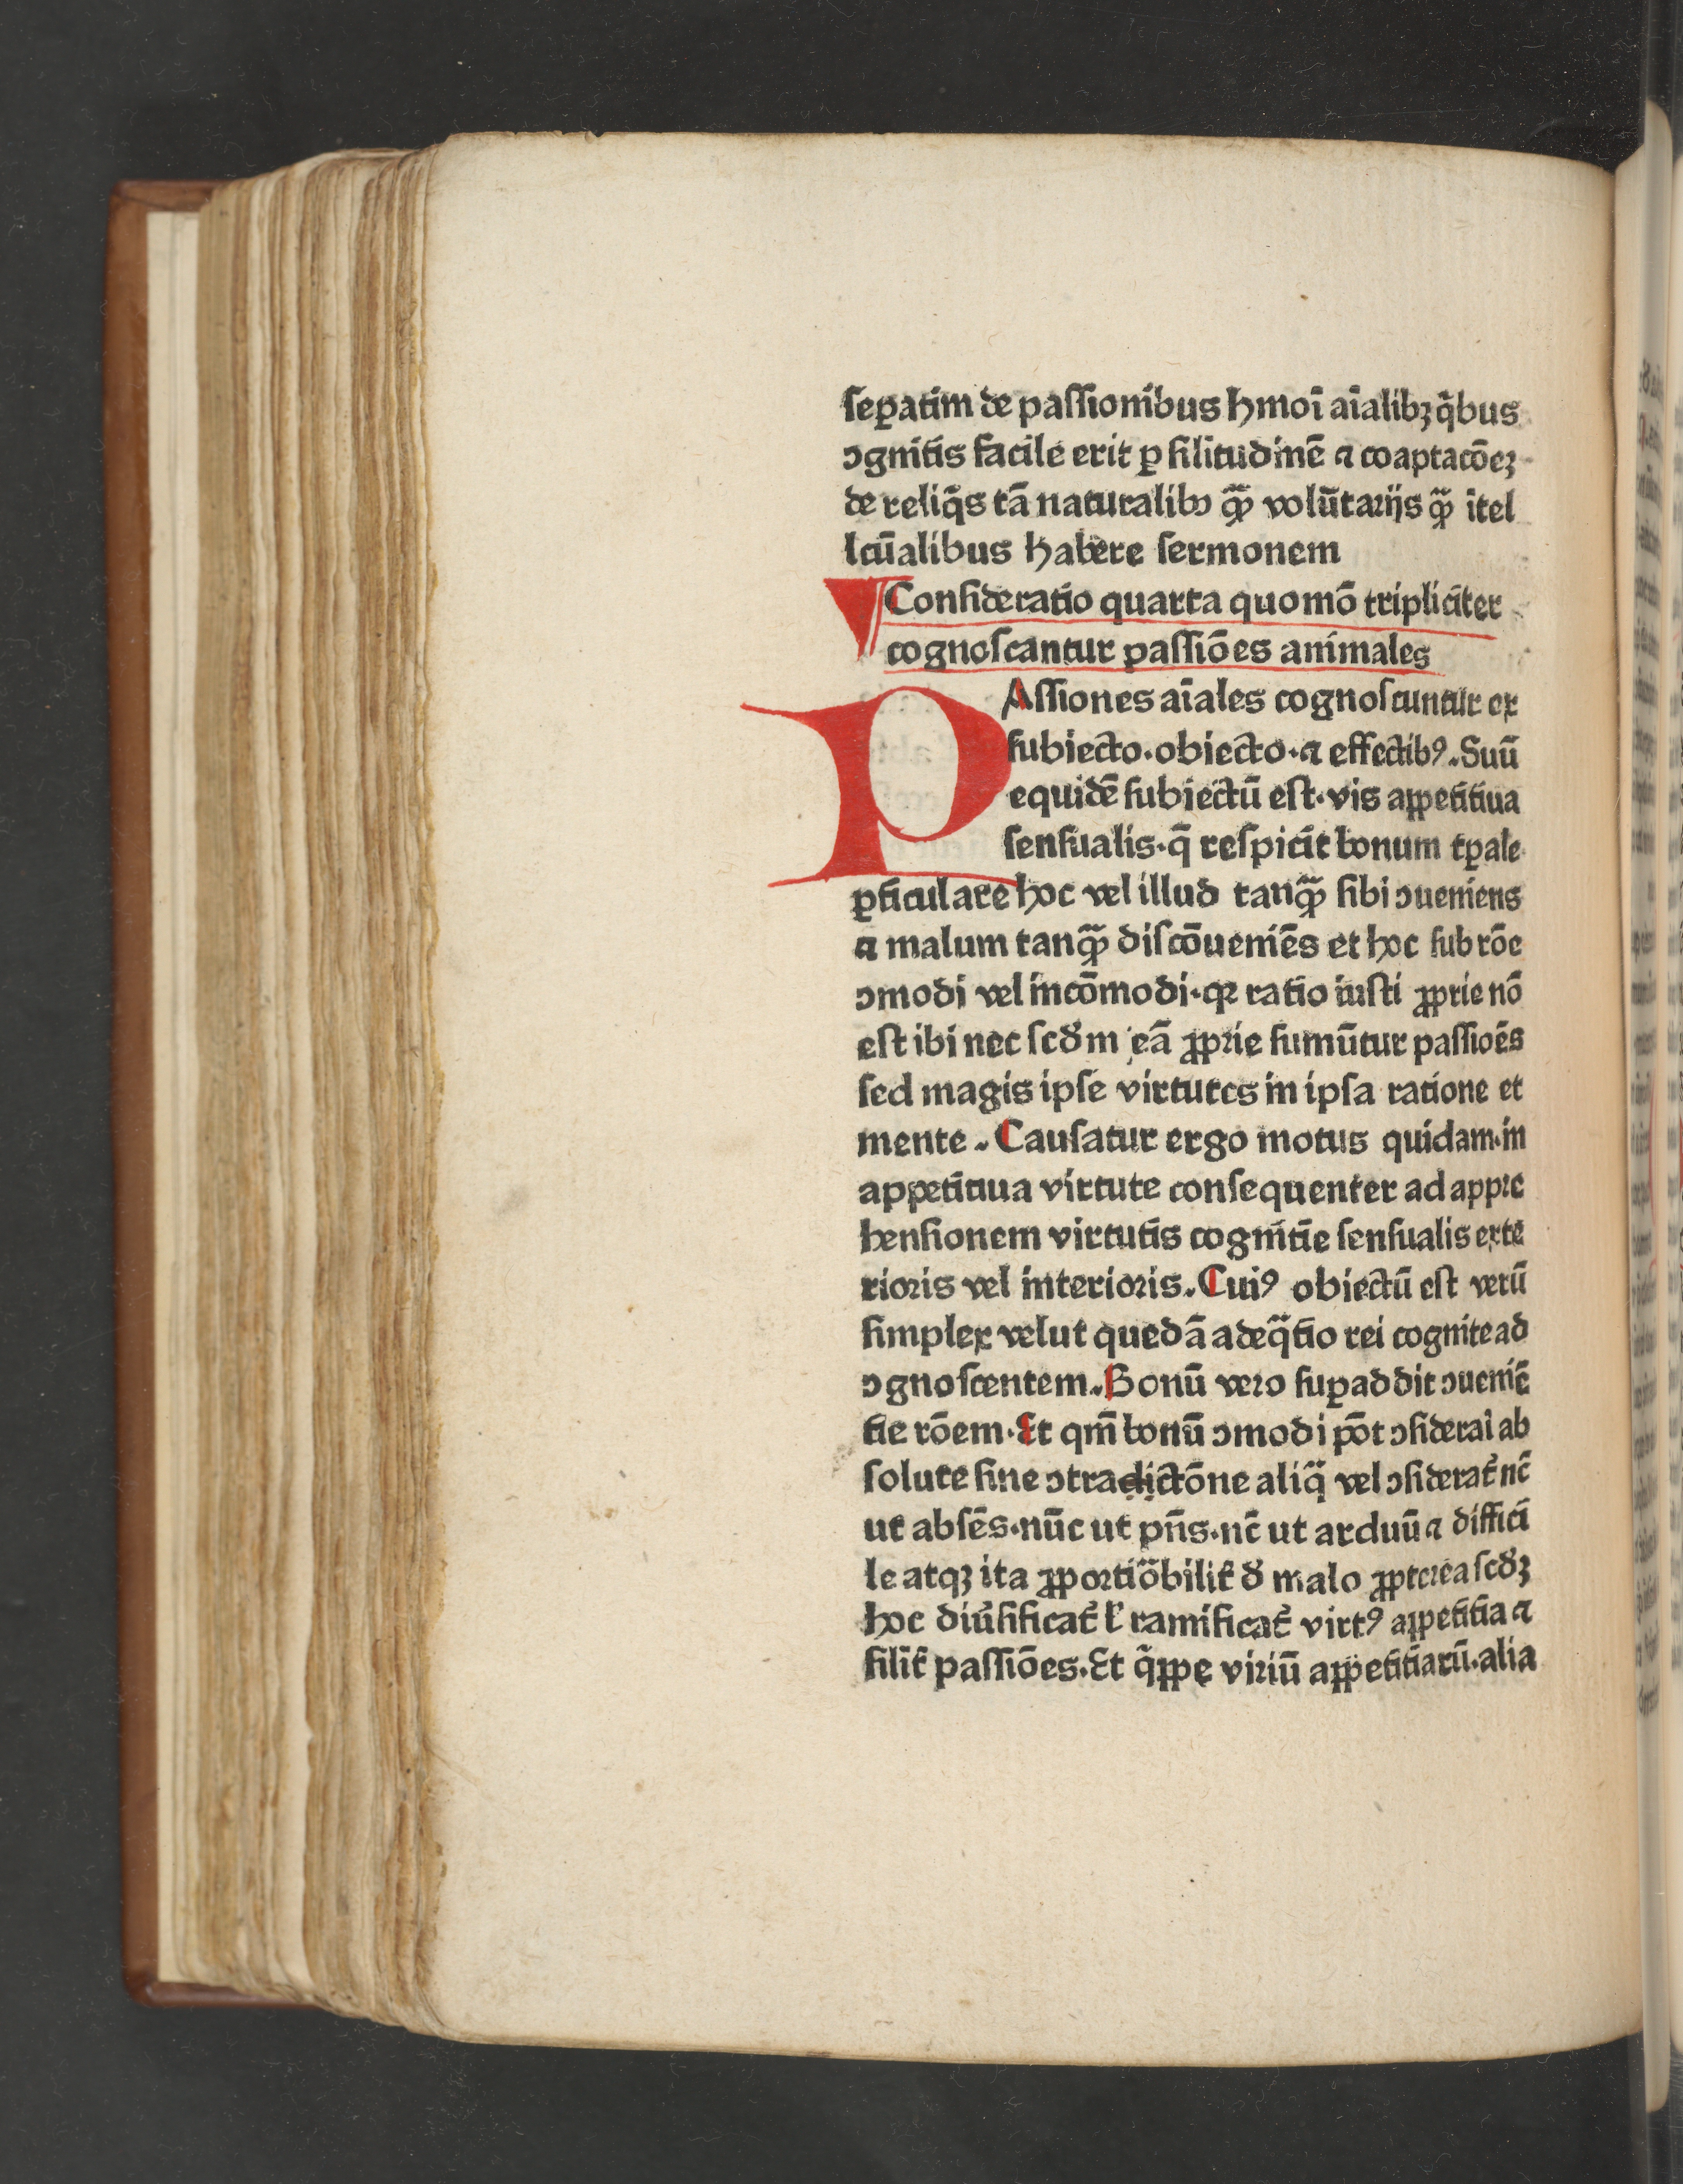 seꝑatim de passionibus hmoi aīalibꝫ q̄bus
ɔgnitis facile erit ꝑ silitudinē ⁊ coaptacōeꝫ
de reliq̄s tā naturalibꝫ qꝫ̄ volūtariis qꝫ̄ itel
lcūalibus habere sermonem
¶Consideratio quarta quomō tripliciter
cognoscantur passiōes animales
PAssiones aīales cognoscuntur ex
subiecto·obiecto·⁊ effectibꝰ. Suū
equidē subiectū est·vis appetitiua
sensualis·q̄ respicit bonum tꝑale
ꝑticulare hoc vel illud tanqꝫ̄ sibi ɔueniens
⁊ malum tanqꝫ̄ discōueniēs et hoc sub rōe
ɔmodi vel incōmodi·qꝛ ratio iusti ꝓprie nō
est ibi nec scd̄m eā ꝓprie sumūtur passiōes
sed magis ipse virtutes in ipsa ratione et
mente. Causatur ergo motus quidam·in
appetitiua virtute consequenter ad appre
hensionem virtutis cognitīe sensualis exte
rioris vel interioris. Cuiꝰ obiectū est verū
simplex velut quedā adeq̄tio rei cognite ad
ɔgnoscentem. Bonū vero suꝑaddit ɔueniē
tie rōem. Et qm̄ bonū ɔmodi pōt ɔsiderai ab
solute sine ɔtradictōne aliq̄ vel ɔsiderat᷑ nc̄
ut absēs·nūc ut pn̄s·nc̄ ut arduū ⁊ diffici
le atqꝫ ita ꝓportiōbilit᷑ d̄ malo ꝓpterea scd̄ꝫ
hoc diūsificat᷑ l᷑ ramificat᷑ virtꝰ appetitīa ⁊
silit᷑ passiōes. Et q̄ppe viriū appetitīarū·alia